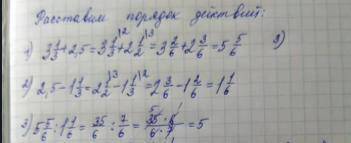 Расставим порядок действий:
1) 3 1/3 + 2,5 = 3 1/3 \2 + 2 1/2 \3 = 3 2/6 + 2 3/6 = 5 5/6 3)
2) 2,5 - 1 1/3 = 2 1/2 \3 - 1 1/3 \2 = 2 3/6 - 1 2/6 = 1 1/6
3) 5 5/6 : 1 1/6 = 35/6 : 7/6 = 35·6/6·7 = 5